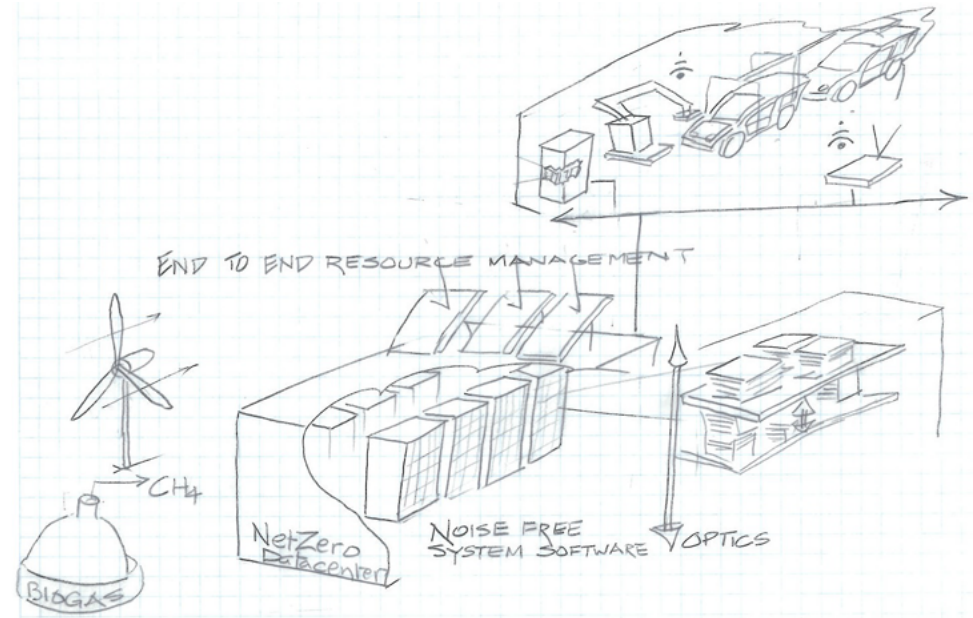 END TO END RESOURCE MANAGEMENT
CH4
BIOGAS
Net-Zero
Datacenter
NOISE FREE
SYSTEM SOFTWARE
OPTICS